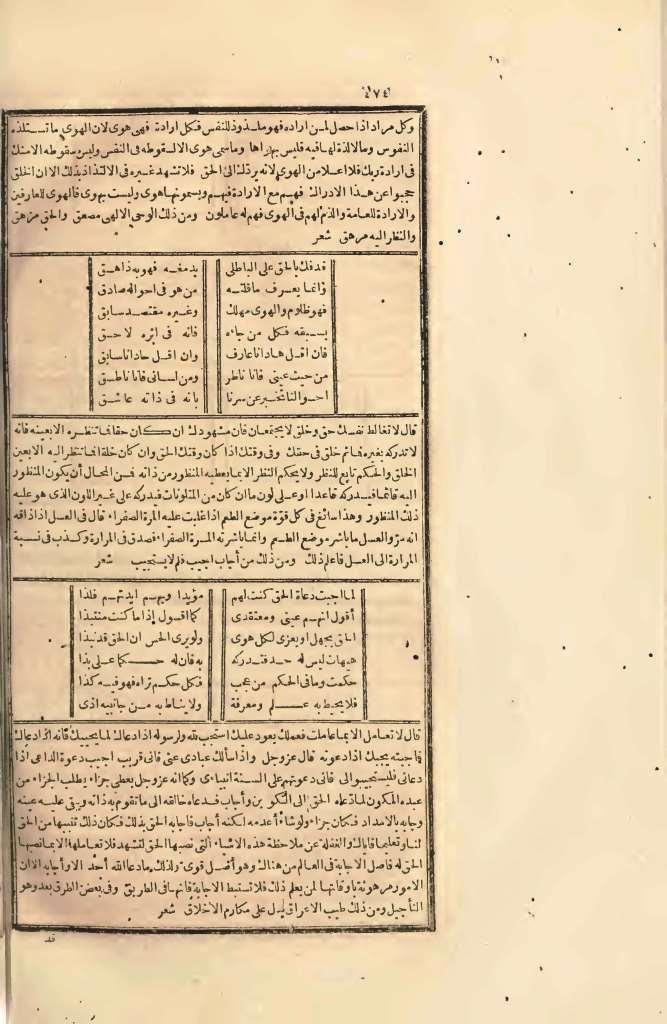 ٤٧٤
وكل مراد اذا حصل لمن اراده فهو ملذوذ للنفس فكل ارادة فهى هوى لان الهوى ما تستلذه
النفوس وما لا لذة لها فيه فليس بهواها وما سمى هوى الا لسقوطه فى النفس وليس سقوطه الا منك
فى ارادة ربك فلا اعلا من الهوى لانه يردك الى الحق فلا تشهد غيره فى الالتذاذ بذلك الا ان الخلق
حجبوا عن هذا الادراك فهم مع الارادة فيهم ويسمونها هوى وليست بهوى فالهوى للعارفين
والارادة للعامة والذم لهم فى الهوى فهم له عاملون ومن ذلك الوحى الالهى مصعق والحق مزهق
والنظر اليه مرهق شعر
قد فك بالحق على الباطل يدمغه فهو به ذاهق
وانما يعرف ما قلته من هو فى احواله صادق
فهو ظلوم والهوى مهلك وغيره مقتصد سابق
يسبقه فكل من جاءه فانه فى اثره لاحق
فان اقل هاد انا عارف وان اقل حاد انا سابق
من حيث عينى فانا ناظر ومن لسانى فانا ناطق
احوالنا تخبر عن سرنا بانه فى ذاته عاشق
قال لا تغالط نفسك حق وخلق لا يجتمعان فان مشهودك ان كان حقا فما تنظره الا بعينه فانه
لا تدركه بغيره فما ثم خلق فى حقك وفى وقتك اذا كان وقتك الحق وان كان خلقا فما تنظر اليه الا بعين
الخلق والحكم تابع للنظر ولا يحكم النظر الا بما يعطيه المنظور من ذاته فمن المحال أن يكون المنظور
اليه قائما فيدركه قاعدا او على لون ما ان كان من المتلونات فيدركه على غير اللون الذى هو عليه
ذلك المنظور وهذا سائغ فى كل قوة موضع الطعم اذا غلبت عليه المرة الصفراء قال فى العسل اذا ذاقه
انه مرّ والعسل ما باشر موضع الطعم وانما باشرته المرة الصفراء فصدق فى المرارة وكذب فى نسبة
المرارة الى العسل فاعلم ذلك ومن ذلك من أجاب اجيب فلم لا يستجيب شعر
لما اجبت دعاة الحق كنت لهم مؤيدا وبهم ايدتهم فلذا
أقول انهم عينى ومعتقدى كما اقول اذا ما كنت منتبذا
الحق يجهل او يعزى لكل هوى ولو يرى الحس ان الحق قد نبذا
هيهات ليس له حد فتدركه به فان له حكما على بذا
حكمت وما فى الحكم من عجب فكل حكم تراه فهو فيه كذا
فلا يحيط به علم ومعرفة ولا يناط به من جانبيه اذى
قال لا تعامل الا بما عاملت فعملك يعود عليك استجب لله ولرسوله اذا دعاك لما يحييك فانه اذا دعاك
فاجبته يجيبك اذا دعوته قال عز وجل واذا سألك عبادى عنى فانى قريب اجيب دعوة الداعى اذا
دعانى فليستجيبوا لى فانى دعوتهم على السنة انبياءى وكما انه عز وجل يعطى جزاء يطلب الجزاء من
عبده المكون لما دعاه الحق الى التكوين وأجاب فدعاه خالقه الى ما تقوم به ذاته ويبقى عليه عينه
وجابه بالامداد فكان جزاء ولو شاء أعدمه لكنه أجاب فاجابه الحق بذلك فكان ذلك تنبيها من الحق
لنا وتعليما فاياك والغفلة عن ملاحظة هذه الاشياء التى نصبها الحق لتشهد فلا تعاملها الا بما نصبها
الحق له فاصل الاجابة فى العالم من هناك وهو أصل قوى ولذلك ما دعا الله أحد الا وأجابه الا ان
الامور مرهونة باوقاتها لمن يعلم ذلك فلا تستبط الاجابة فانها فى الطريق وفى بعض الطرق بعد وهو
التأجيل ومن ذلك طيب الاعراق يدل على مكارم الاخلاق شعر
قد